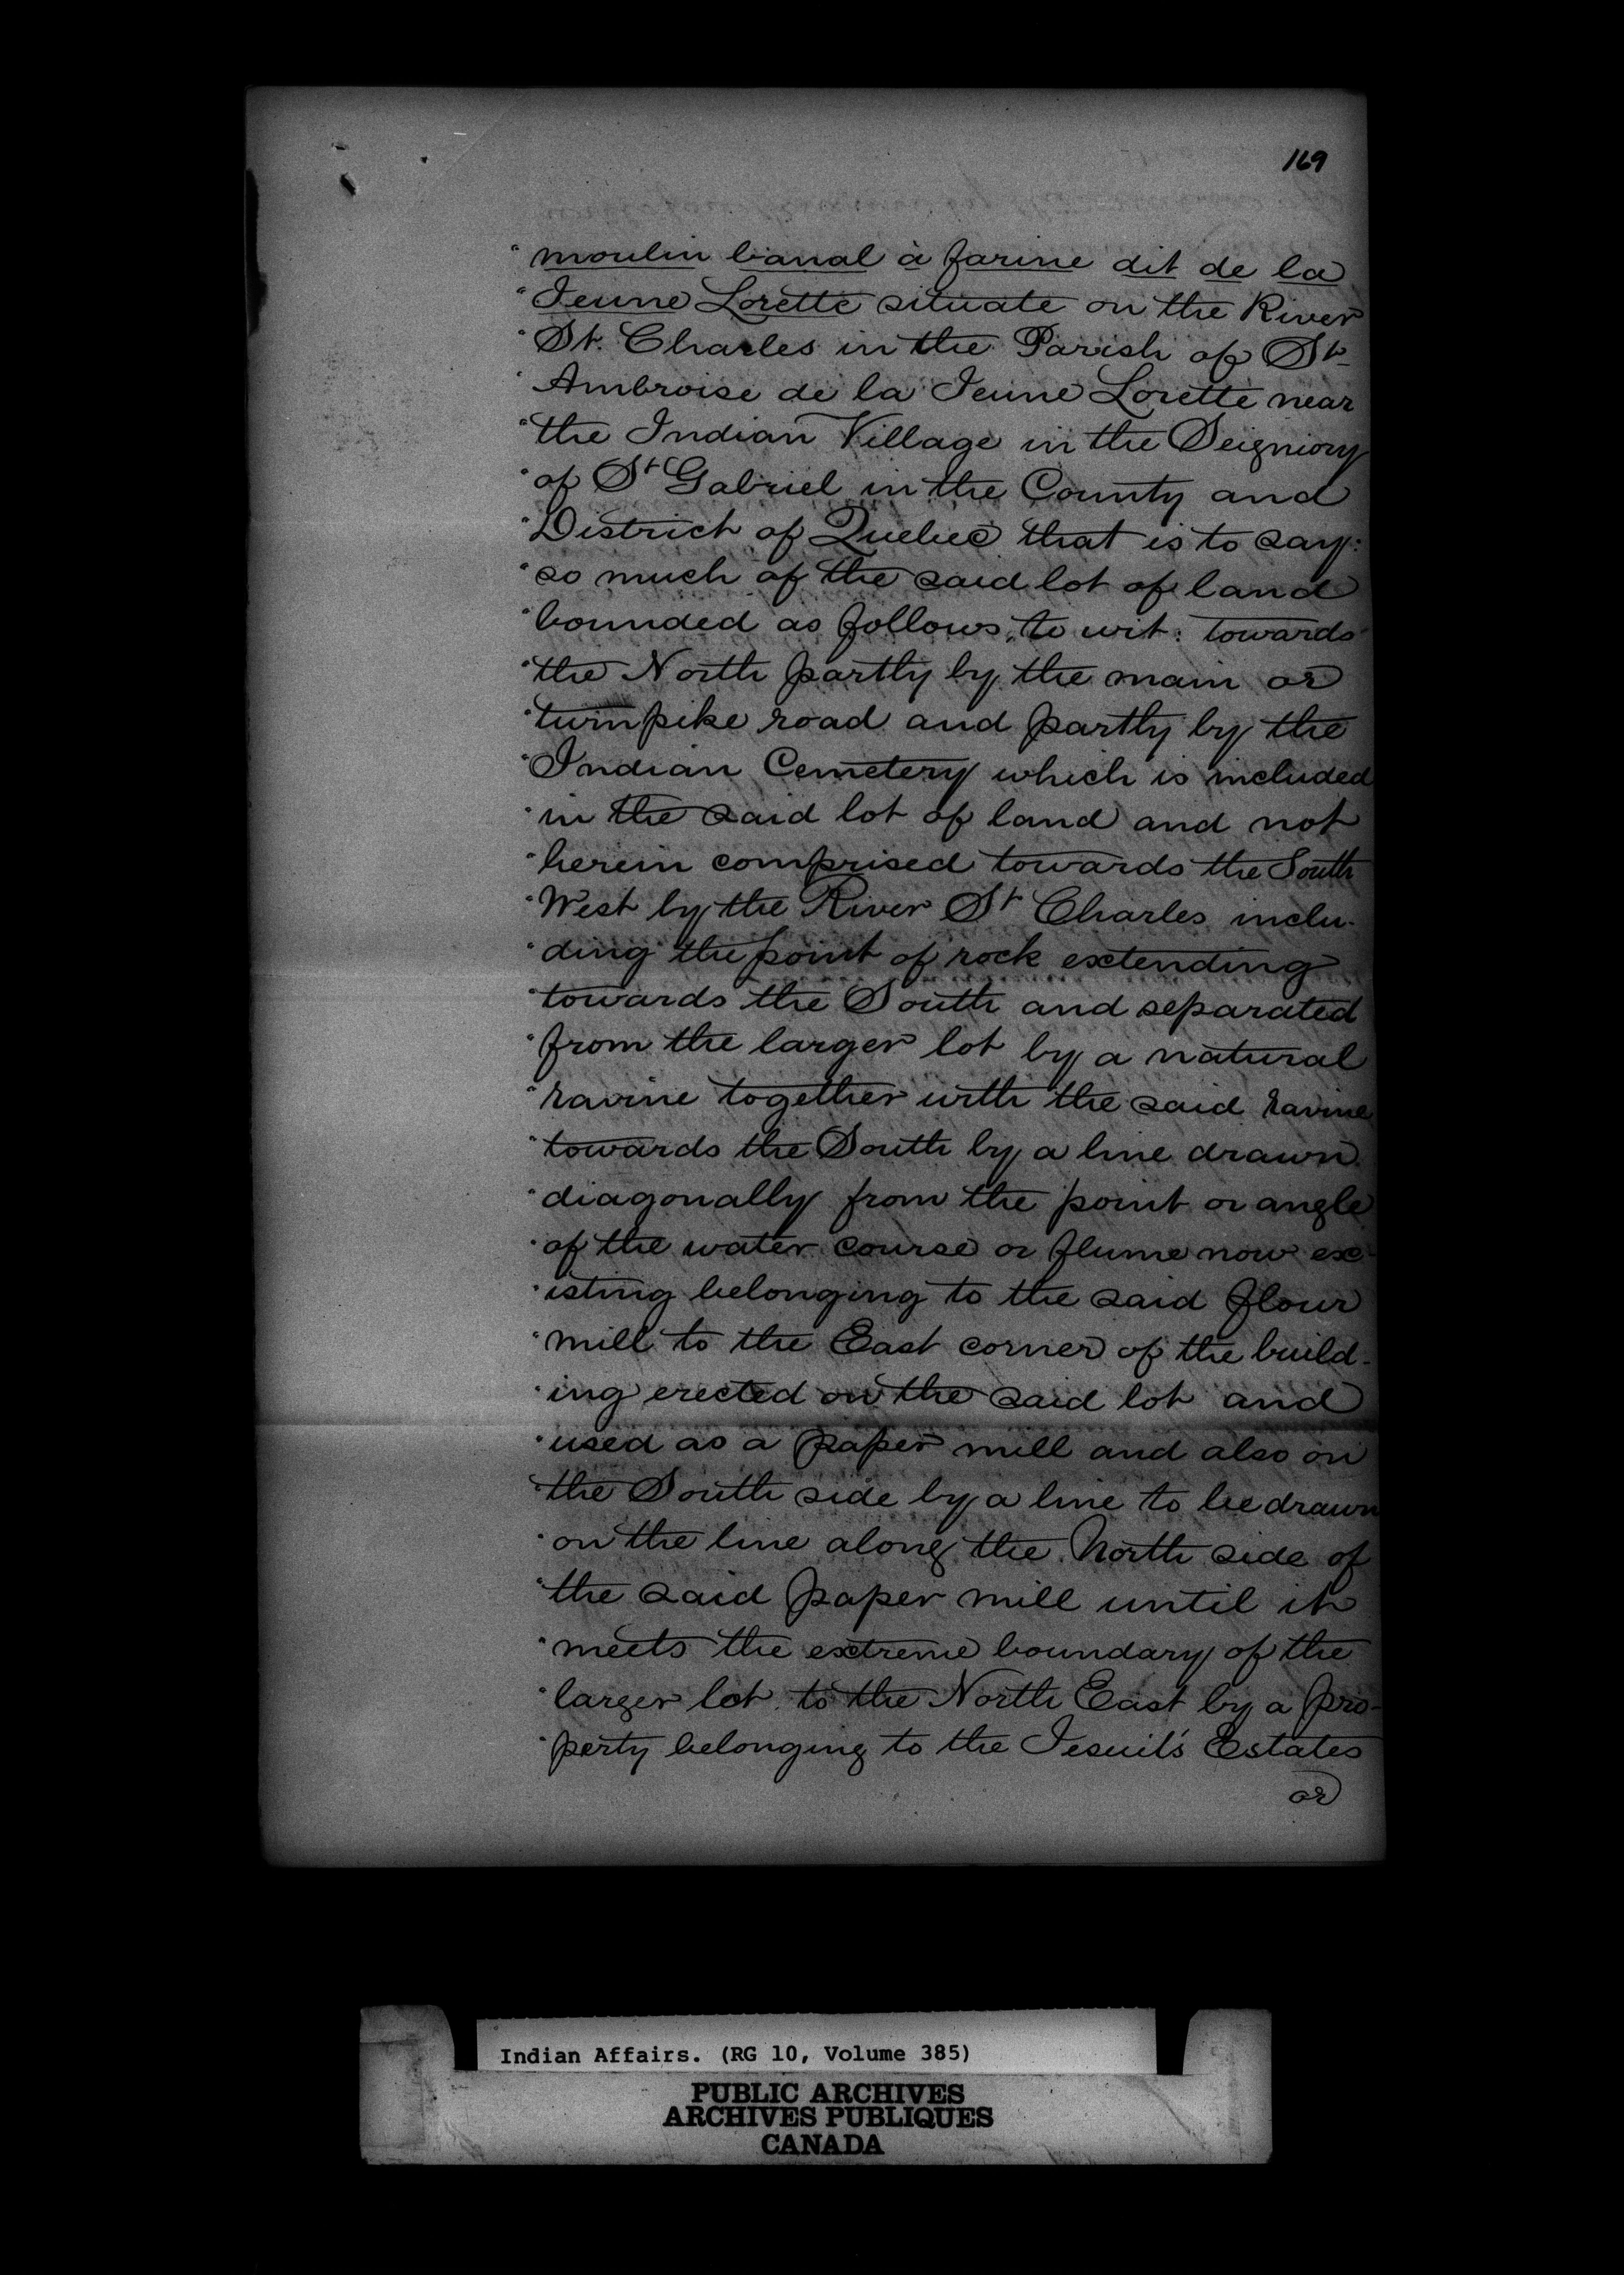 169
" moulin banal à farine dit de la
" Jeune Lorette situate on the River
" St. Charles in the Parish of St
" Ambroise de la Jeune Lorette near
" the Indian Village in the Seigniory
" of St Gabriel in the County and
" District of Quebec that is to say:
" so much of the said lot of land
" bounded as follows, to wit: towards
" the North partly by the main or
" turnpike road and partly by the
" Indian Cemetery which is included
" in the said lot of land and not
" herein comprised towards the South
" West by the River St Charles inclu-
" ding the point of rock extending
" towards the South and separated
" from the larger lot by a natural
" ravine together with the said ravine
" towards the South by a line drawn
" diagonally from the point or angle
" of the water course or flume now ex-
" isting belonging to the said flour
" mill to the East corner of the build-
" ing erected on the said lot and
" used as a paper mill and also on
" the South side by a line to be drawn
" on the line along the North side of
" the said paper mill until it
" meets the extreme boundary of the
" larger lot to the North East by a pro-
" perty belonging to the Jesuit's Estates
or
Indian Affairs. (RG 10, Volume 385)
PUBLIC ARCHIVES
ARCHIVES PUBLIQUES
CANADA